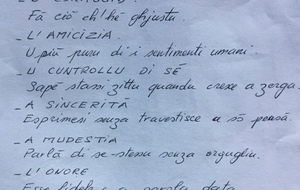 Fà ciò ch'hè ghjustu.
- L'AMICIZIA.
U più puru di i sentimenti umani.
- U CUNTROLLU DI SÈ
Sapè stassi zittu quandu cresce a zerga.
- A SINCERITÀ
Esprimesi senza travestisce u so pensà.
- A MUDESTIA
Parlà di sè-stessu senza orgugliu.
- L'ONORE
Esse fidele a a parola data